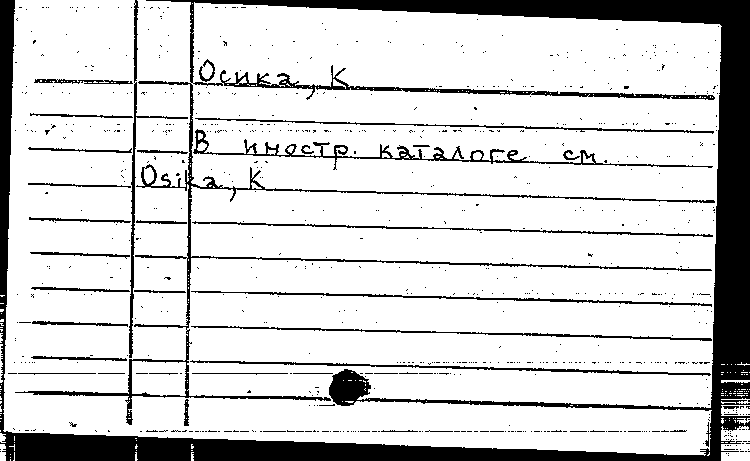 Осика, К
В иностр. каталоге см.
Osika, K